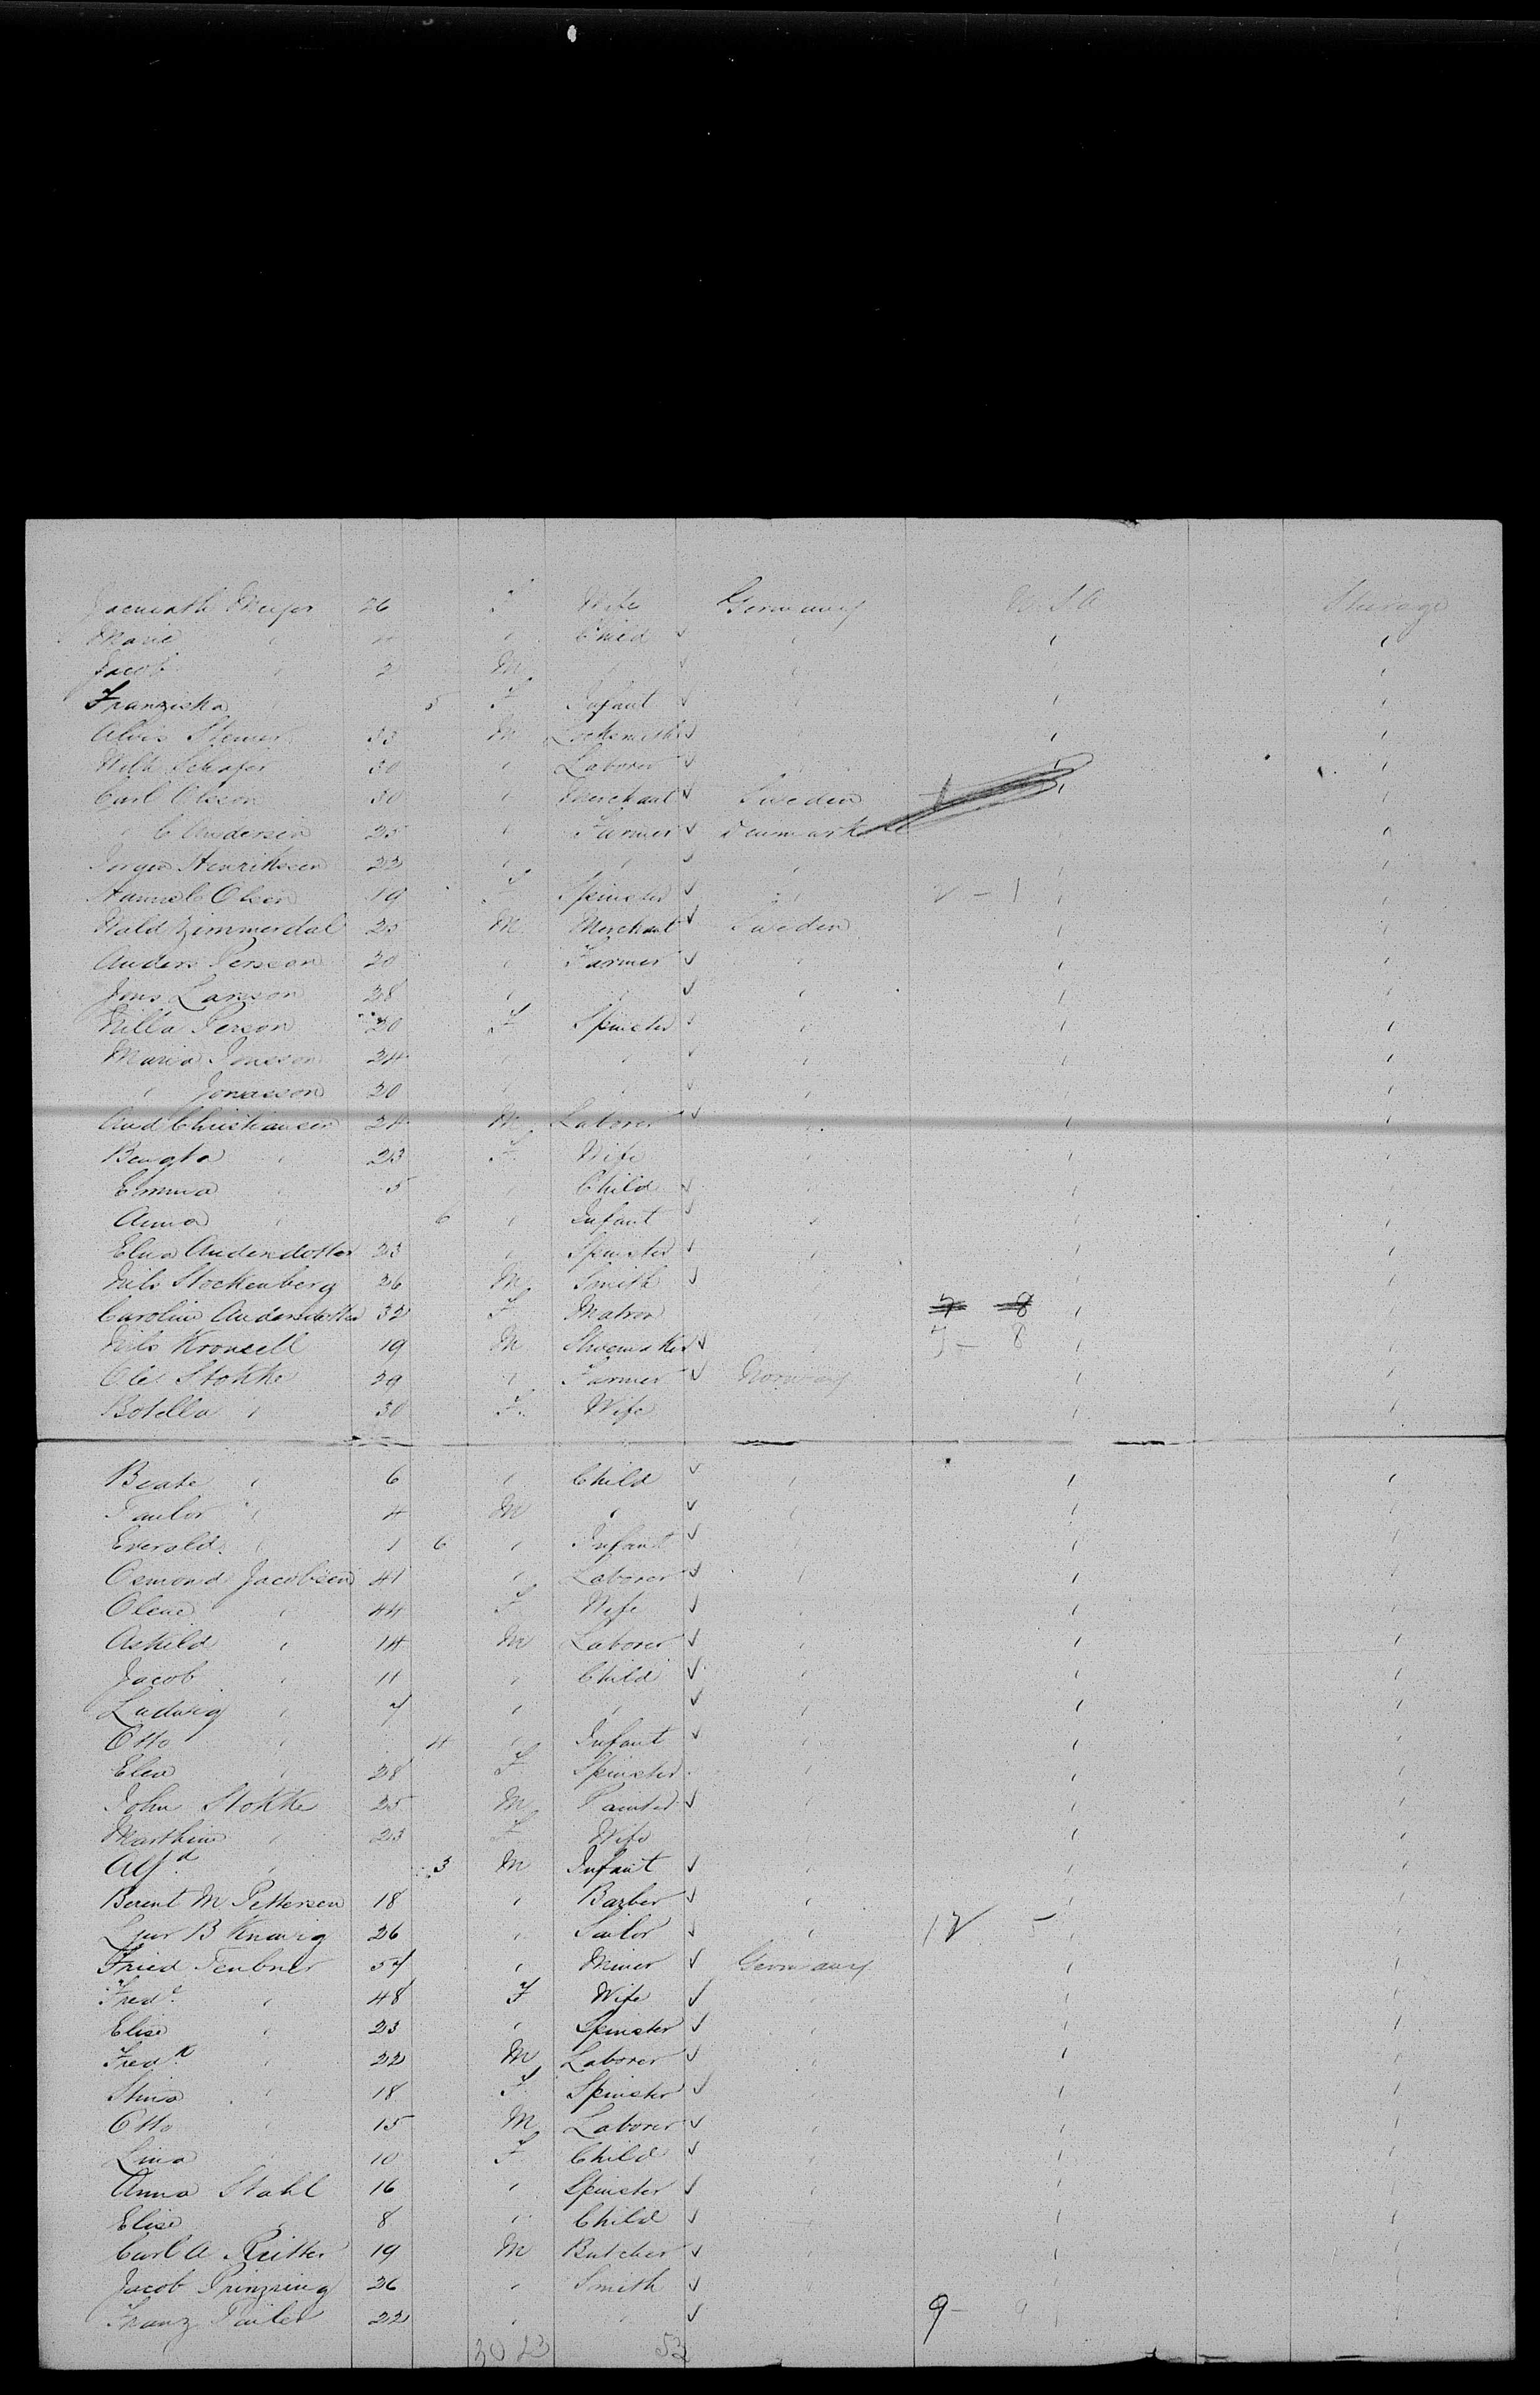 Meyer 26 F Wife Germany U.S.A Steerage
Marie " 4 " Child " " "
Jacob " 2 M " " " "
Franziska " 5 F Infant " " "
Alois 33 M Locksmith " " "
Wilh Schafer 30 " Laborer " " "
Carl Olsson 30 " Merchant Sweden " "
" C Andersen 25 " Farmer Denmark "
Jorgen Henriksen 22 " " " " "
Hanne C Olsen 19 F Spinster " 2 - 1 " "
Wald Zimmerdal 25 M Merchant Sweden " "
Anders Persson 20 " Farmer " " "
Jons Larsson 28 " " " " "
Nilla Person 20 F Spinster " " "
Maria Jonsson 24 " " " " "
" Jonasson 20 " " " " "
And Christiansen 24 M Laborer " " "
Bengta " 23 F Wife " " "
Emma " 5 " Child " " "
Anna " 6 " Infant " " "
Elna Andersdotter 23 " Spinster " " "
Nils Stockenberg 26 M Smith " "
Caroline Andersdotter 32 F Matron 7 8 "
Nils Kronsell 19 M Shoemaker " 7 - 8 " "
Ole Stokke 29 " Farmer Norway " "
Botella " 30 F Wife " "
Beate " 6 " Child " " "
4 M " " " "
Everald " 1 6 " Infant " " "
Osmond Jacobsen 41 " Laborer " " "
Olene " 44 F Wife " " "
Askild " 14 M Laborer " " "
Jacob " 11 " Child " " "
Ludwig " 7 " " " " "
Otto " 4 " Infant " " "
Elen " 28 F Spinster " " "
John Stokke 25 M Painter " " "
Marthine " 23 F Wife " "
Alfd " 3 M Infant " " "
Berent M Pettersen 18 " Barber " " "
B 26 " Sailor " 12 5 " "
Fried Teubner 57 " Miner Germany " "
Fredr " 48 F Wife " " "
Elise " 23 " Spinster " " "
Fredk " 22 M Laborer " " "
18 F Spinster " " "
Otto " 15 M Laborer " " "
Lina " 10 F Child " " "
Anna Stahl 16 " Spinster " " "
Elise " 8 " Child " " "
Carl A Ritter 19 M Butcher " " "
Jacob Prinzing 26 " Smith " " "
Franz 22 " " 9 - 9 " "
30 23 53